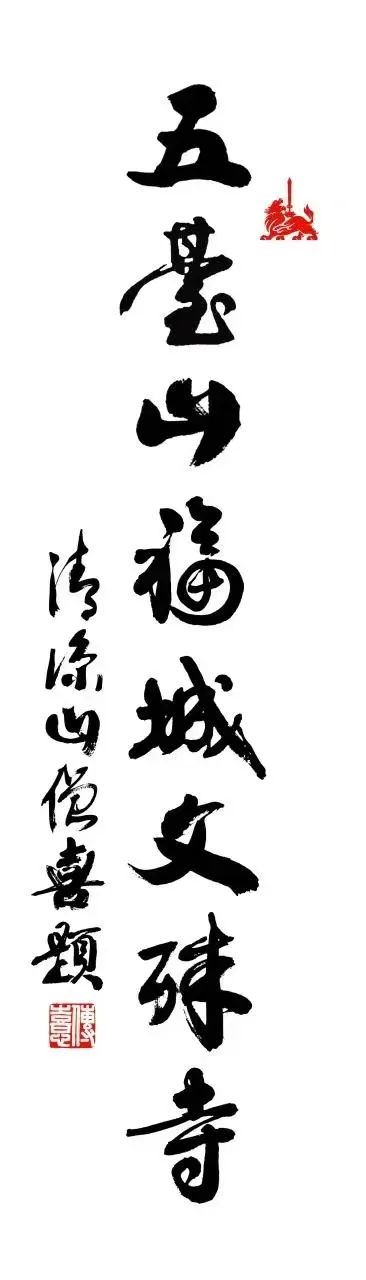 五臺山福城文殊寺
清涼山僧喜題